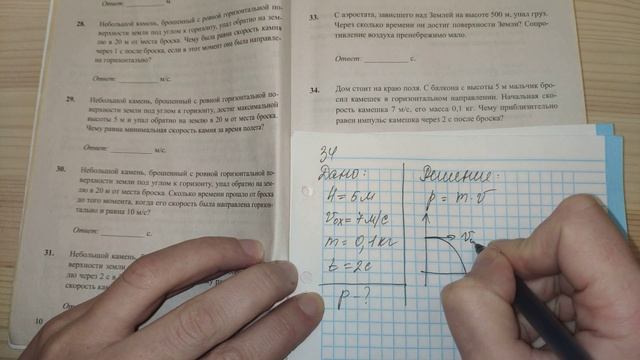 Ответ:
м.
28.
Небольшой камень, брошенный с ровной горизонтальной по-
верхности земли под углом к горизонту, упал обратно на зем-
лю в 20 м от места броска. Чему была равна скорость камня
через 1 с после броска, если в этот момент она была направле-
на горизонтально?
Ответ: м/с.
29.
Небольшой камень, брошенный с ровной горизонтальной по-
верхности земли под углом к горизонту, достиг максимальной
высоты 5 м и упал обратно на землю в 20 м от места броска.
Чему равна минимальная скорость камня за время полета?
Ответ: м/с.
30.
Небольшой камень, брошенный с ровной горизонтальной по-
верхности земли под углом к горизонту, упал обратно на зем-
лю в 20 м от места броска. Сколько времени прошло от броска
до того момента, когда его скорость была направлена горизон-
тально и равна 10 м/с?
Ответ: с.
31.
Небольшой камень,
верхности земли
лю через 2 с
скорость кам
Ответ:
10
33.
С аэростата, зависшего над Землей на высоте 500 м, упал груз.
Через сколько времени он достиг поверхности Земли? Сопро-
тивление воздуха пренебрежимо мало.
Ответ: с.
34.
Дом стоит на краю поля. С балкона с высоты 5 м мальчик бро-
сил камешек в горизонтальном направлении. Начальная ско-
рость камешка 7 м/с, его масса 0,1 кг. Чему приблизительно
равен импульс камешка через 2 с после броска?
34
Дано:
H = 5 м
v₀ₓ = 7 м/с
m = 0,1 кг
t = 2с
p - ?
Решение:
p = m·v